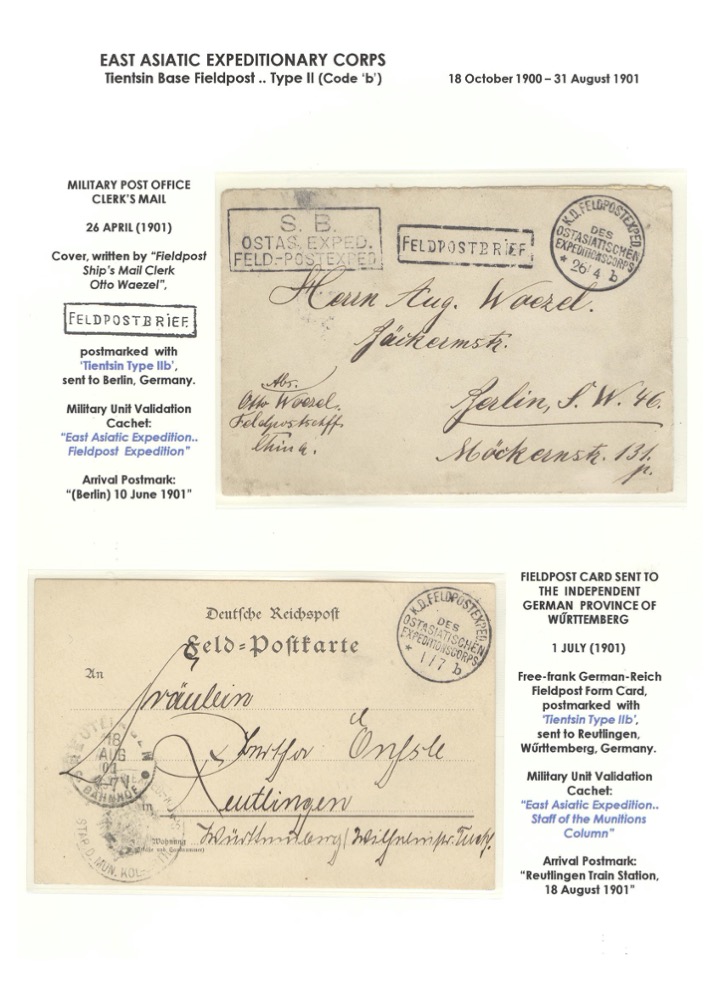 EAST ASIATIC EXPEDITIONARY CORPS
Tientsin Base Fieldpost .. Type II (Code 'b')
18 October 1900 – 31 August 1901
MILITARY POST OFFICE
CLERK'S MAIL
26 APRIL (1901)
Cover, written by "Fieldpost
Ship's Mail Clerk
Otto Waezel",
FELDPOSTBRIEF
postmarked with
'Tientsin Type IIb',
sent to Berlin, Germany.
Military Unit Validation
Cachet:
"East Asiatic Expedition..
Fieldpost Expedition"
Arrival Postmark:
"(Berlin) 10 June 1901"
S. B.
OSTAS. EXPED.
FELD.-POSTEXPED.
FELDPOSTBRIEF.
K.D. FELDPOSTEXPED.
DES
OSTASIATISCHEN
EXPEDITIONSCORPS
* 26/4 b
Herrn Aug. Waezel.
Jäckermstr.
Berlin, S. W. 46.
Möckernstr. 131.
p.
Abs.
Otto Waezel.
Feldpostschff.
China.
Deutsche Reichspost
Feld-Postkarte
K.D. FELDPOSTEXPED.
DES
OSTASIATISCHEN
EXPEDITIONSCORPS
* 1/7 b
An
Fräulein
Bertha Enßle
in
Reutlingen
Wohnung
Württemberg/
REUTLINGEN
18
AUG
01
BAHNHOF
STAB D. MUN. KOL.
FIELDPOST CARD SENT TO
THE INDEPENDENT
GERMAN PROVINCE OF
WŰRTTEMBERG
1 JULY (1901)
Free-frank German-Reich
Fieldpost Form Card,
postmarked with
'Tientsin Type IIb',
sent to Reutlingen,
Wűrttemberg, Germany.
Military Unit Validation
Cachet:
"East Asiatic Expedition..
Staff of the Munitions
Column"
Arrival Postmark:
"Reutlingen Train Station,
18 August 1901"